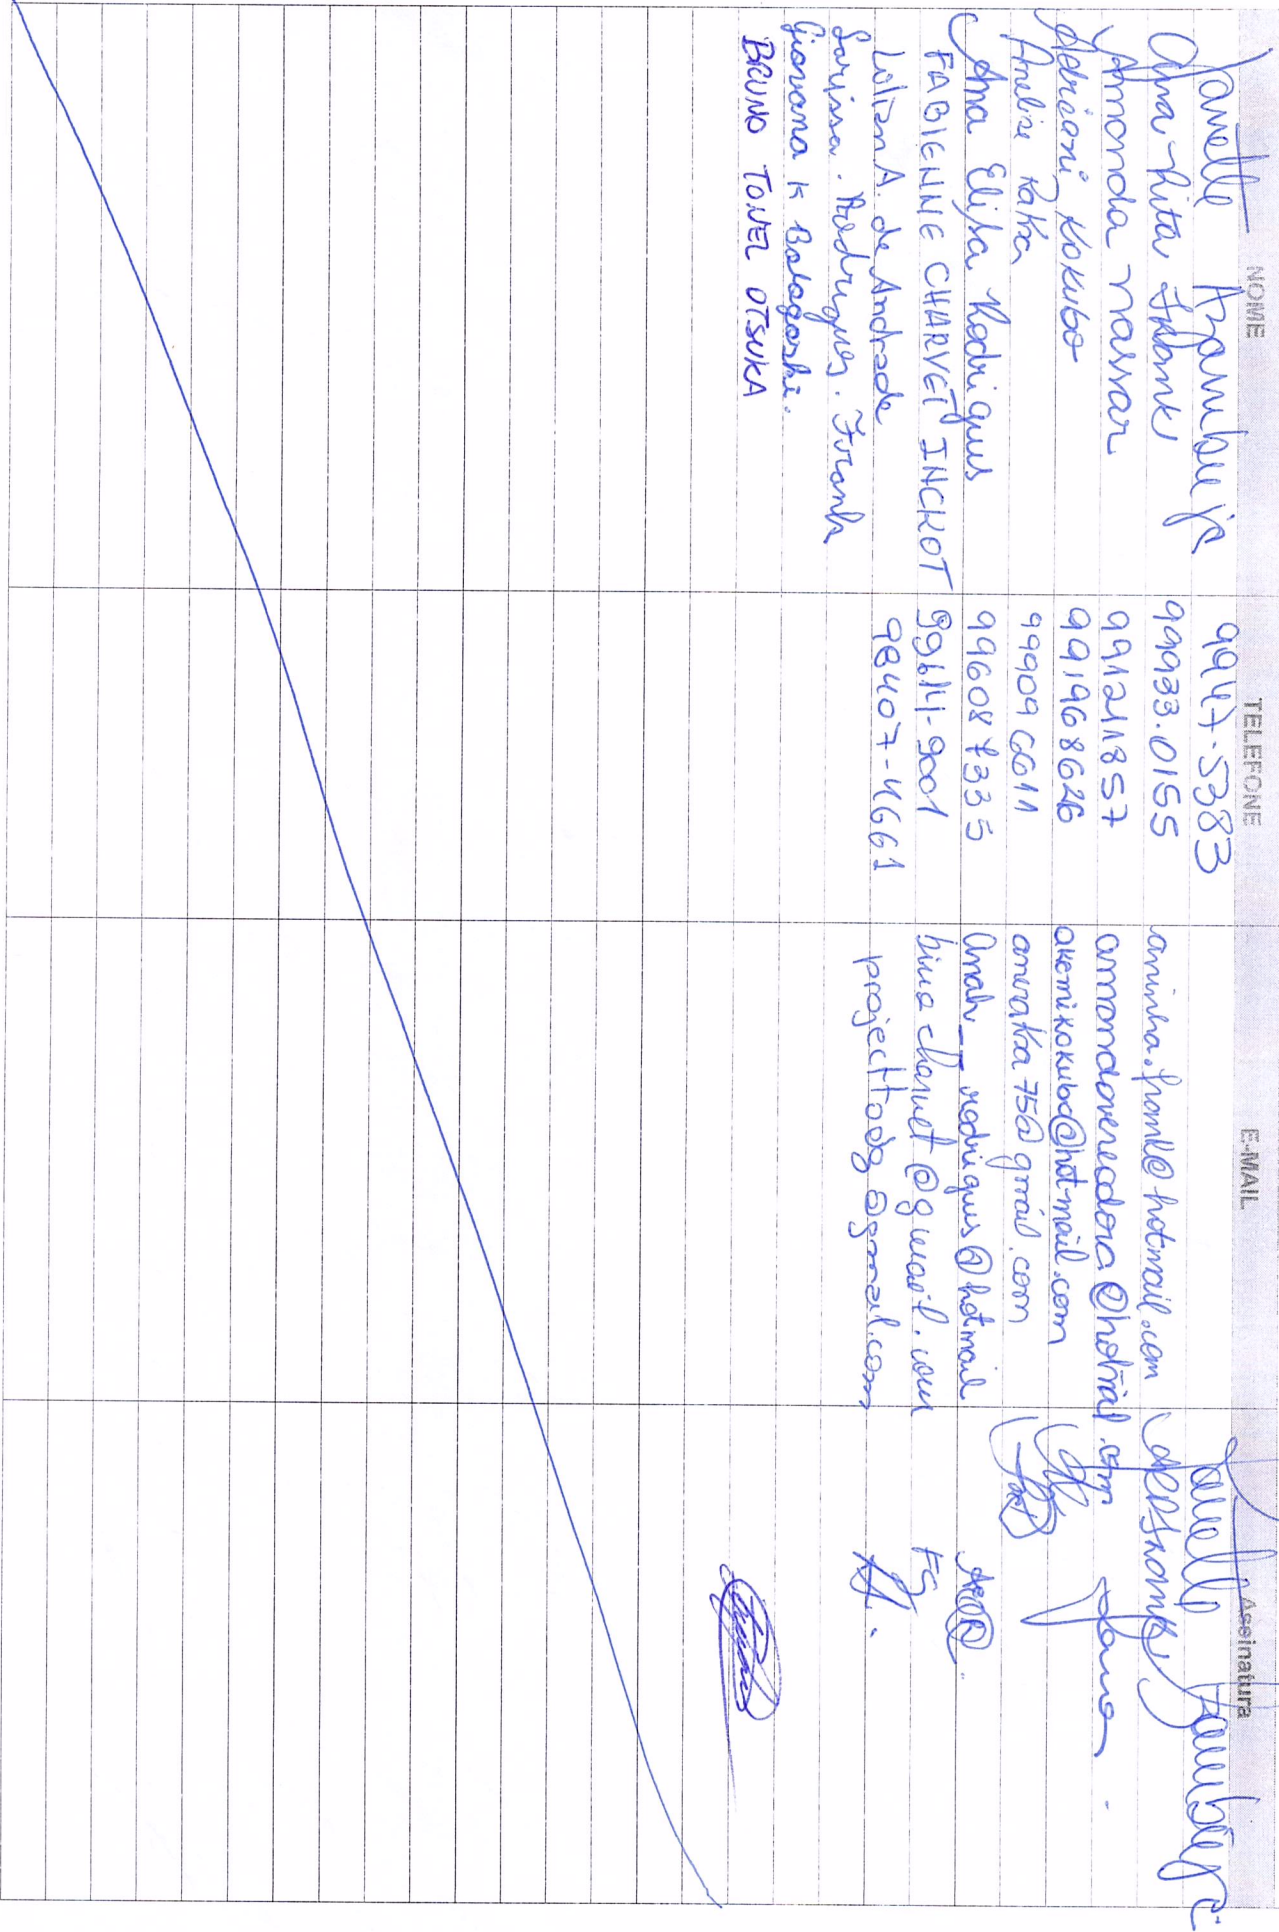 NOME TELEFONE E-MAIL Assinatura
Janette Azambuja 9947-5383 Janette Azambuja
Ana Rita 99933.0155 aninha.frank@hotmail.com
Amanda Nassar 991211857 amandavereadora@hotmail.com
Adriani Kokubo 991968626 akemikokubo@hotmail.com
Anelise Raka 999096611 aneraka75@gmail.com
Ana Elisa Rodrigues 996087335 anah_rodrigues@hotmail
FABIENNE CHARVET INCKOT 99614-9001 bina charvet@gmail.com FC
Lilian A. de Andrade 98407-4661 projecttodg@gmail.com
Larissa. Rodrigues. Franka
Giovana K Balagaski.
BRUNO TONEL OTSUKA